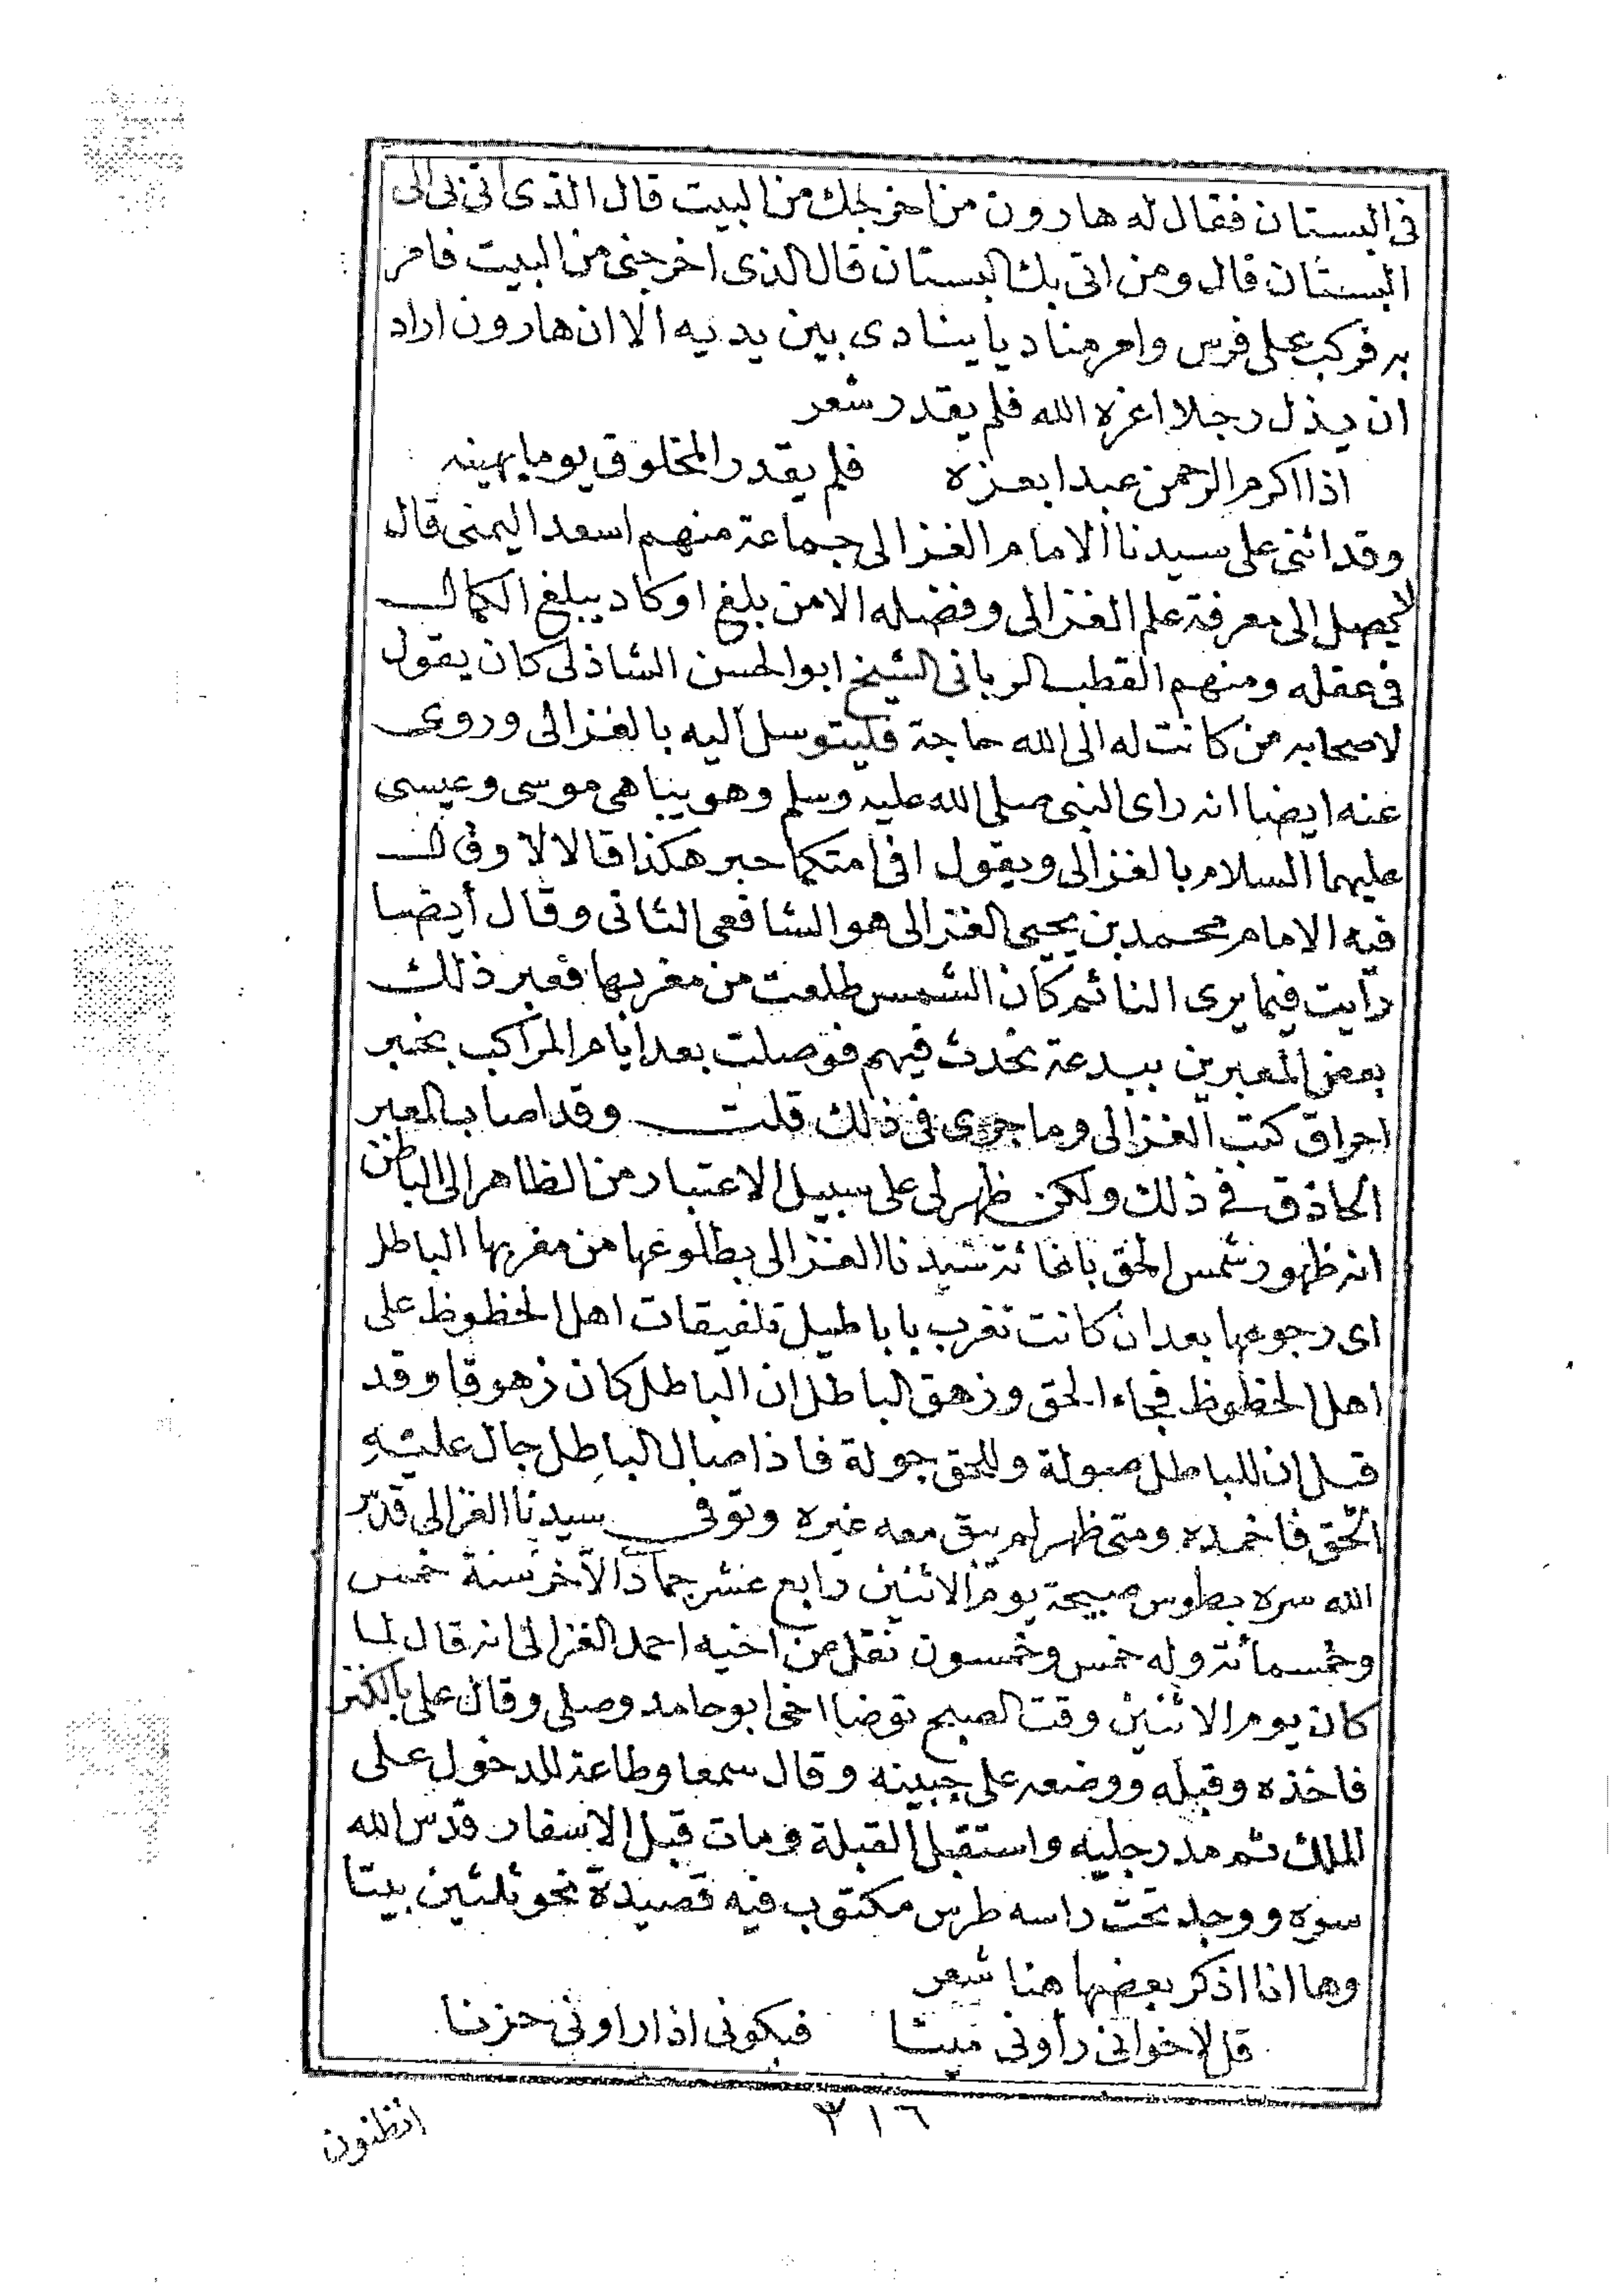 فى البستان فقال له هارون من اخرجك من البيت قال الذى اتى بى الى
البستان قال ومن اتى بك البستان قال الذى اخرجنى من البيت فامر
به فركب على فرس وامر مناديا ينادى بين يديه الا ان هارون اراد
ان يذل رجلا اعزه الله فلم يقدر شعر
اذا اكرم الرحمن عبدا بعزه فلم يقدر المخلوق يوما يهينه
وقد اثنى على سيدنا الامام الغزالى جماعة منهم اسعد اليمنى قال
لا يصل الى معرفة علم الغزالى وفضله الا من بلغ او كاد يبلغ الكمال
فى عقله ومنهم القطب الربانى الشيخ ابو الحسن الشاذلى كان يقول
لاصحابه من كانت له الى الله حاجة فليتوسل اليه بالغزالى وروى
عنه ايضا انه راى النبى صلى الله عليه وسلم وهو يباهى موسى وعيسى
عليهما السلام بالغزالى ويقول افى امتكما حبر هكذا قالا لا وقال
فيه الامام محمد بن يحيى الغزالى هو الشافعى الثانى وقال أيضا
رأيت فيما يرى النائم كان الشمس طلعت من مغربها فعبر ذلك
بعض المعبرين ببدعة تحدث فيهم فوصلت بعد ايام المراكب بخبر
احراق كتب الغزالى وما جرى فى ذلك قلت وقد اصاب المعبر
الحاذق فى ذلك ولكن ظهر لى على سبيل الاعتبار من الظاهر الى الباطن
انه ظهور شمس الحق باغاثة سيدنا الغزالى بطلوعها من مغربها الباطل
اى رجوعها بعد ان كانت تغرب باباطيل تلفيقات اهل الحظوظ على
اهل الحظوظ فجاء الحق وزهق الباطل ان الباطل كان زهوقا وقد
قيل ان للباطل صولة وللحق جولة فاذا صال الباطل جال عليه
الحق فاخمده ومتى ظهر لم يبق معه غيره وتوفى سيدنا الغزالى قدس
الله سره بطوس صبيحة يوم الاثنين رابع عشر جماد الآخر سنة خمس
وخمسمائة وله خمس وخمسون نقل عن اخيه احمد الغزالى انه قال لما
كان يوم الاثنين وقت الصبح توضا اخى ابو حامد وصلى وقال على بالكفن
فاخذه وقبله ووضعه على جبينه وقال سمعا وطاعة للدخول على
الملك ثم مد رجليه واستقبل القبلة ومات قبل الاسفار قدس الله
سره ووجد تحت راسه طرس مكتوب فيه قصيدة نحو ثلثين بيتا
وها انا اذكر بعضها هنا شعر
قل لاخوانى رأونى ميتا فبكونى اذا راونى حزنا
٣١٦
اتظنون